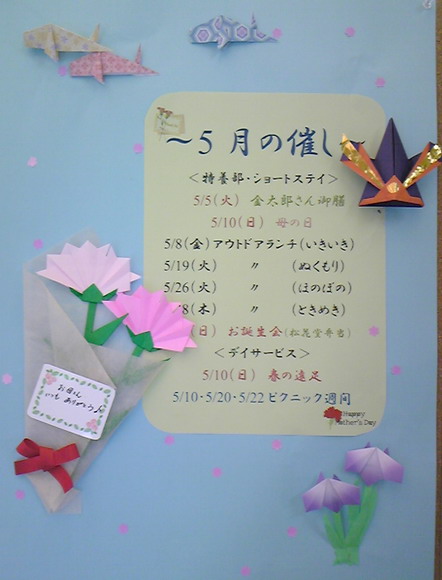 ～5月の催し～
＜特養部・ショートステイ＞
5/5(火) 金太郎さん御膳
5/10(日) 母の日
5/8(金) アウトドアランチ(いきいき)
5/19(火) 〃 (ぬくもり)
5/26(火) 〃 (ほのぼの)
8(木) 〃 (ときめき)
(日) お誕生会(松花堂弁当)
＜デイサービス＞
5/10(日) 春の遠足
5/10・5/20・5/22 ピクニック週間
Happy
Mother's Day
お母さん
いつもありがとう